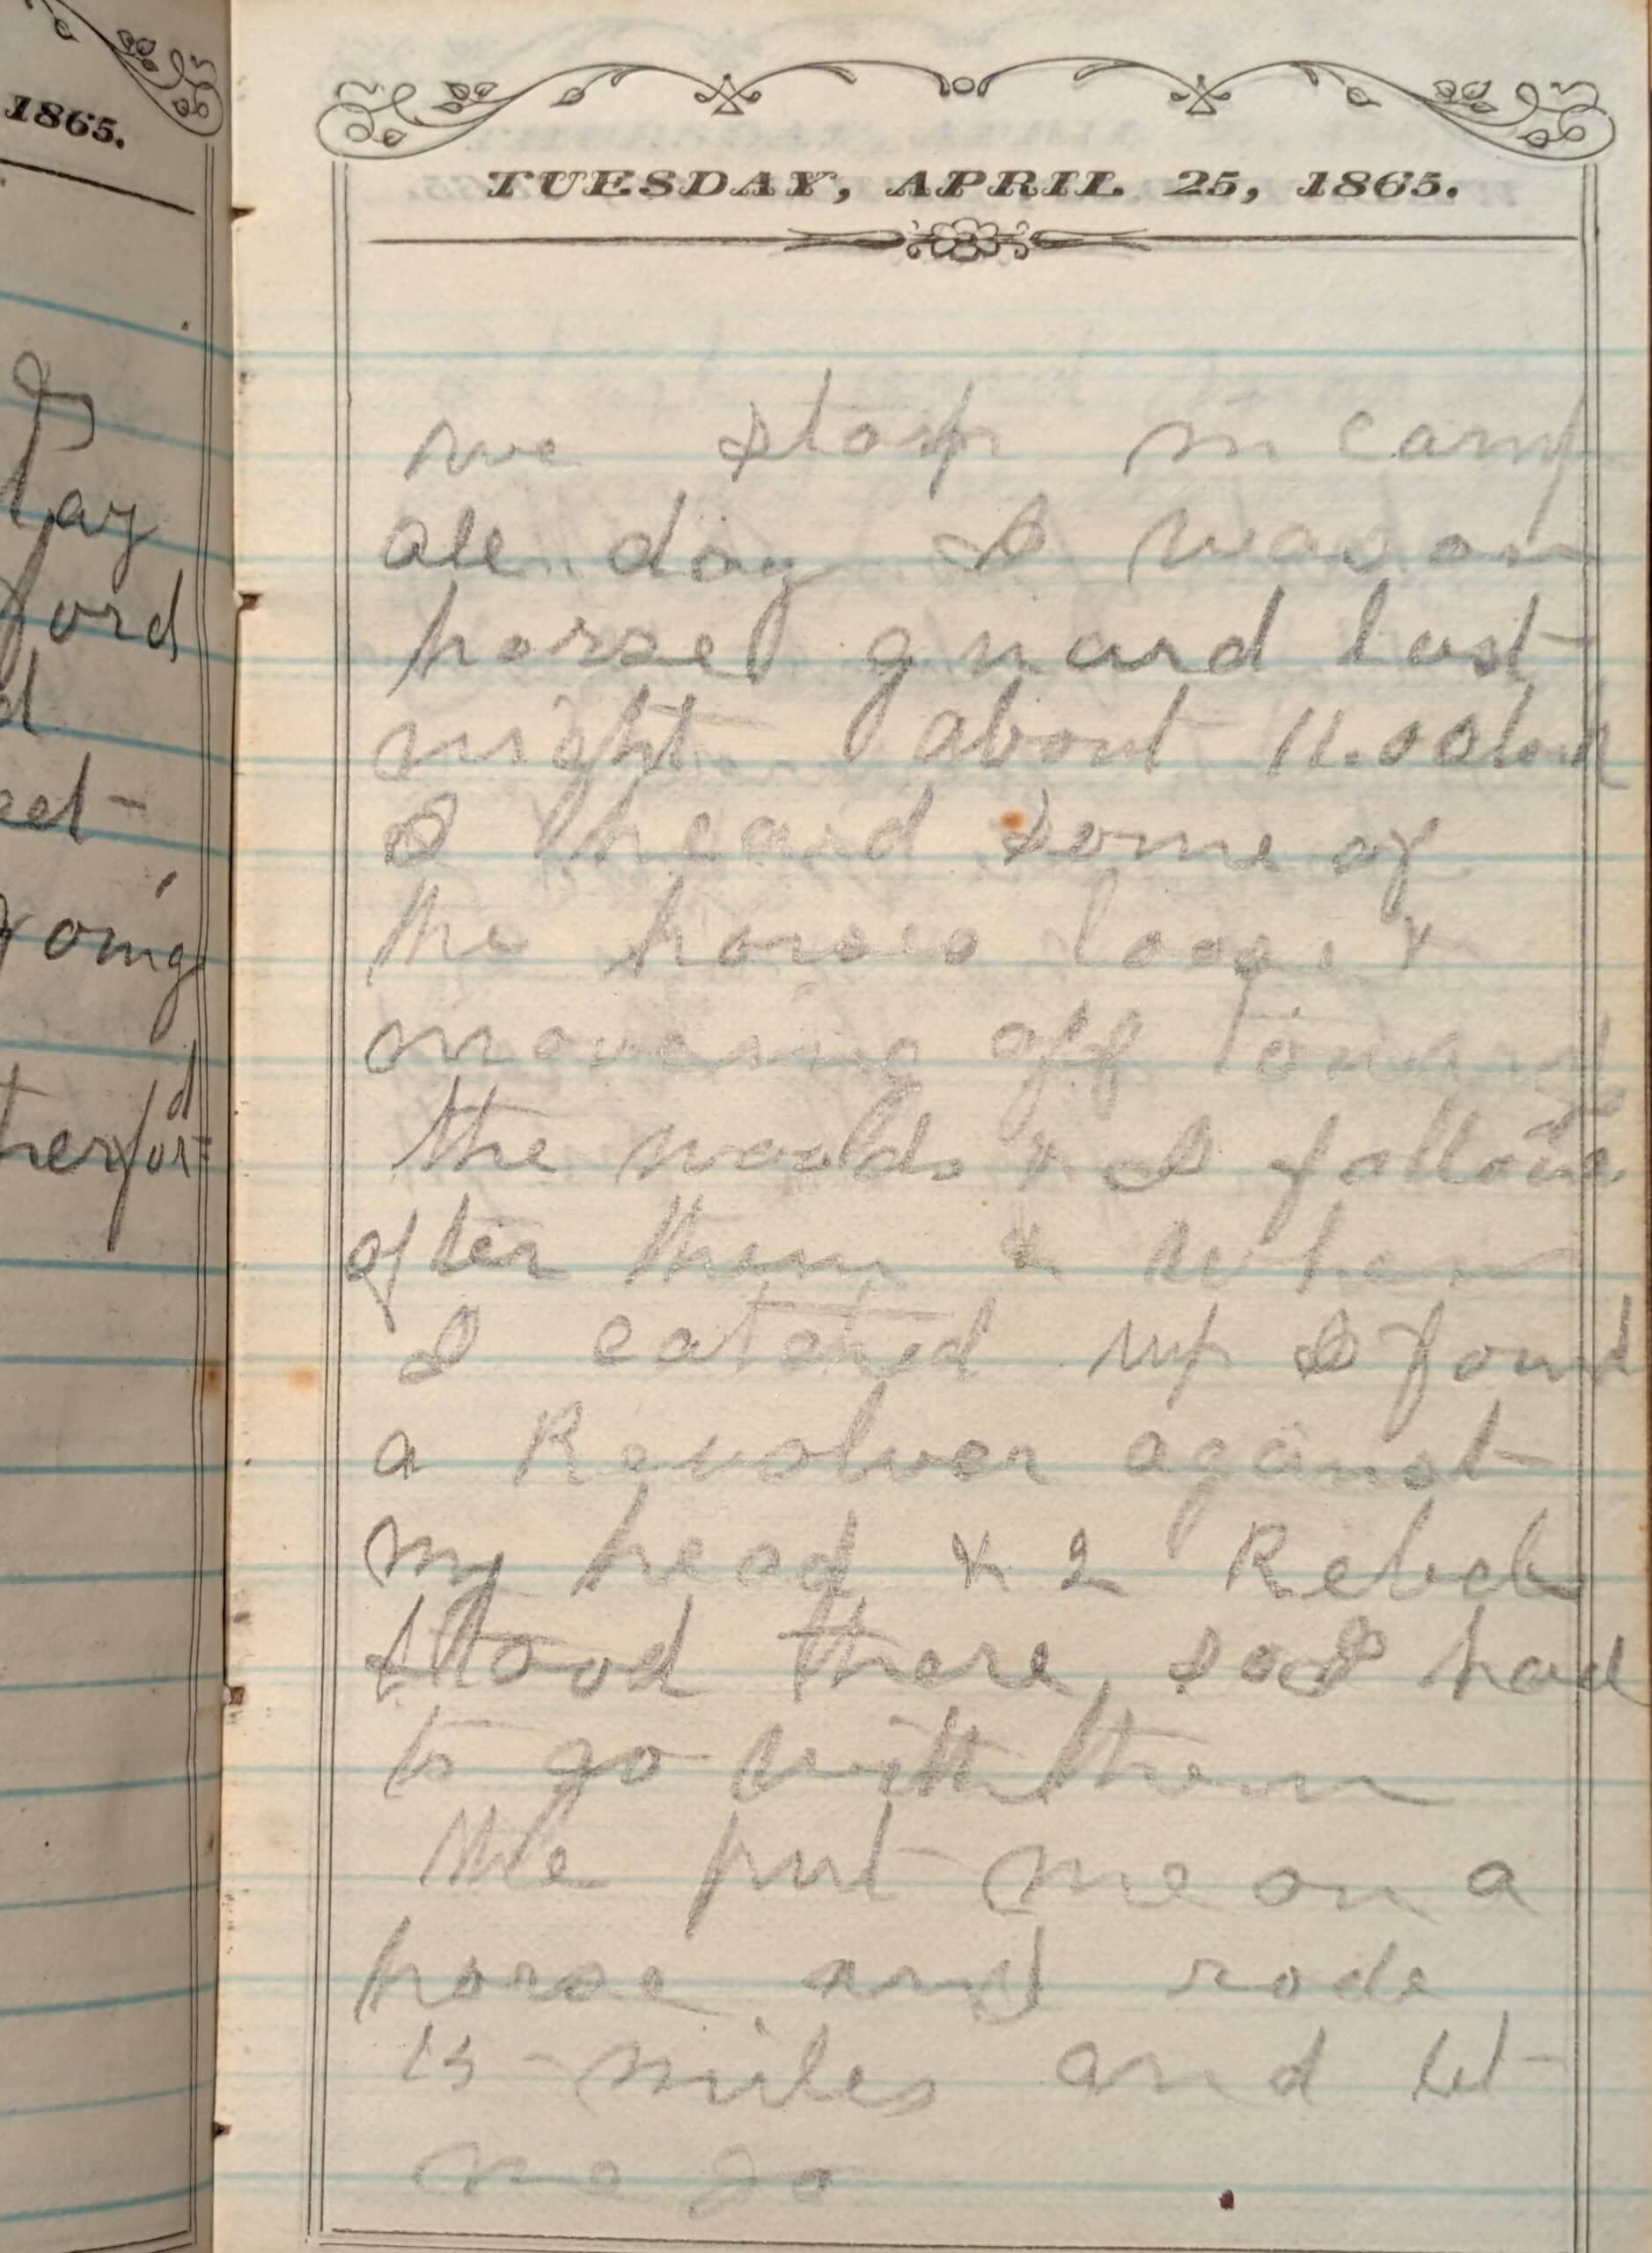 1865.
Day
ford
d
eet
going
d
herfor=
TUESDAY, APRIL 25, 1865.
we stop in camp
all day I was on
horse guard last
night about 11.00clock
I heard some of
the horses loose &
moveing off toward
the woods & I follow
after them & when
I catched up I found
a Revolver against
my head & 2 Rebels
stood there, so I had
to go with them
the put me on a
horse and rode
15 miles and let
me go